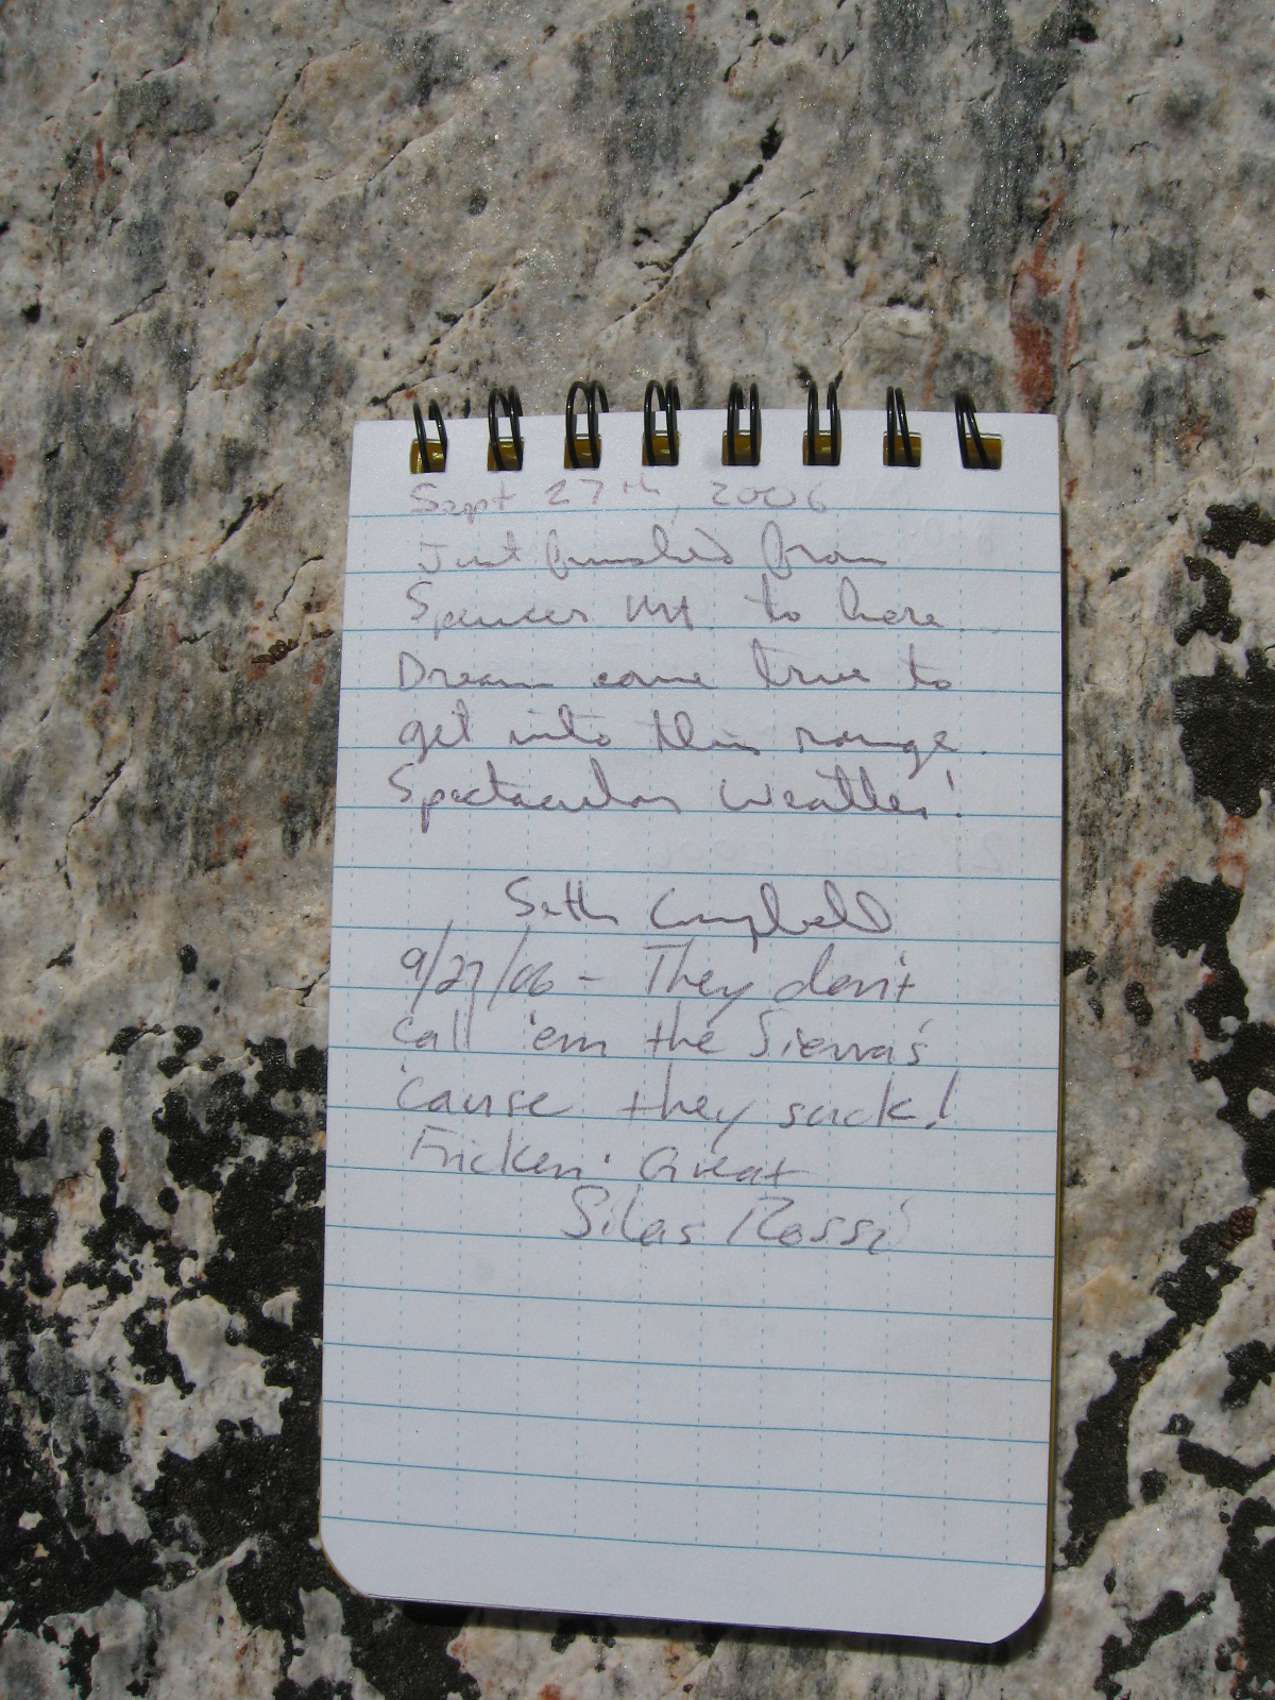 Sept 27th, 2006
Just finished from
Spencer Mt. to here.
Dream come true to
get into this range.
Spectacular Weather!
Seth Campbell
9/27/06 - They don't
call 'em the Sierra's
'cause they suck!
Fricken' Great
Silas Rossi